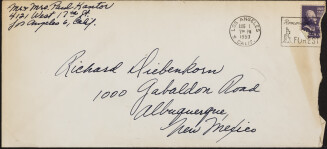 Mr & Mrs. Paul Kantor
4121 West 17th St
Los Angeles 6, Calif.
LOS ANGELES
CALIF.
Richard Diebenkorn
1000 Gabaldon Road
Albuquerque,
New Mexico